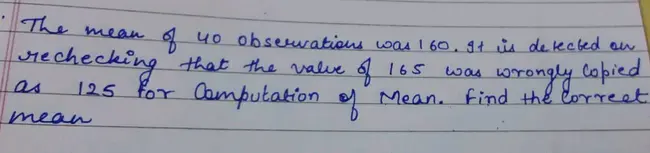 The mean of 40 observations was 160. It is detected on
rechecking that the value of 165 was wrongly Copied
as 125 for Computation of Mean. Find the correct
mean